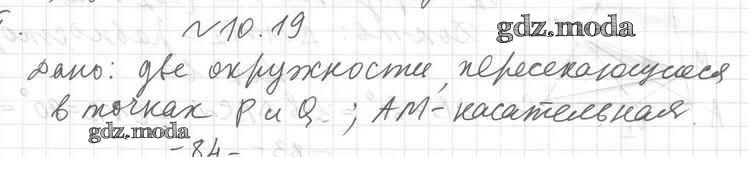 №10.19
gdz.moda
Дано: две окружности, пересекающиеся
в точках P и Q; AM-касательная.
gdz.moda
-84-